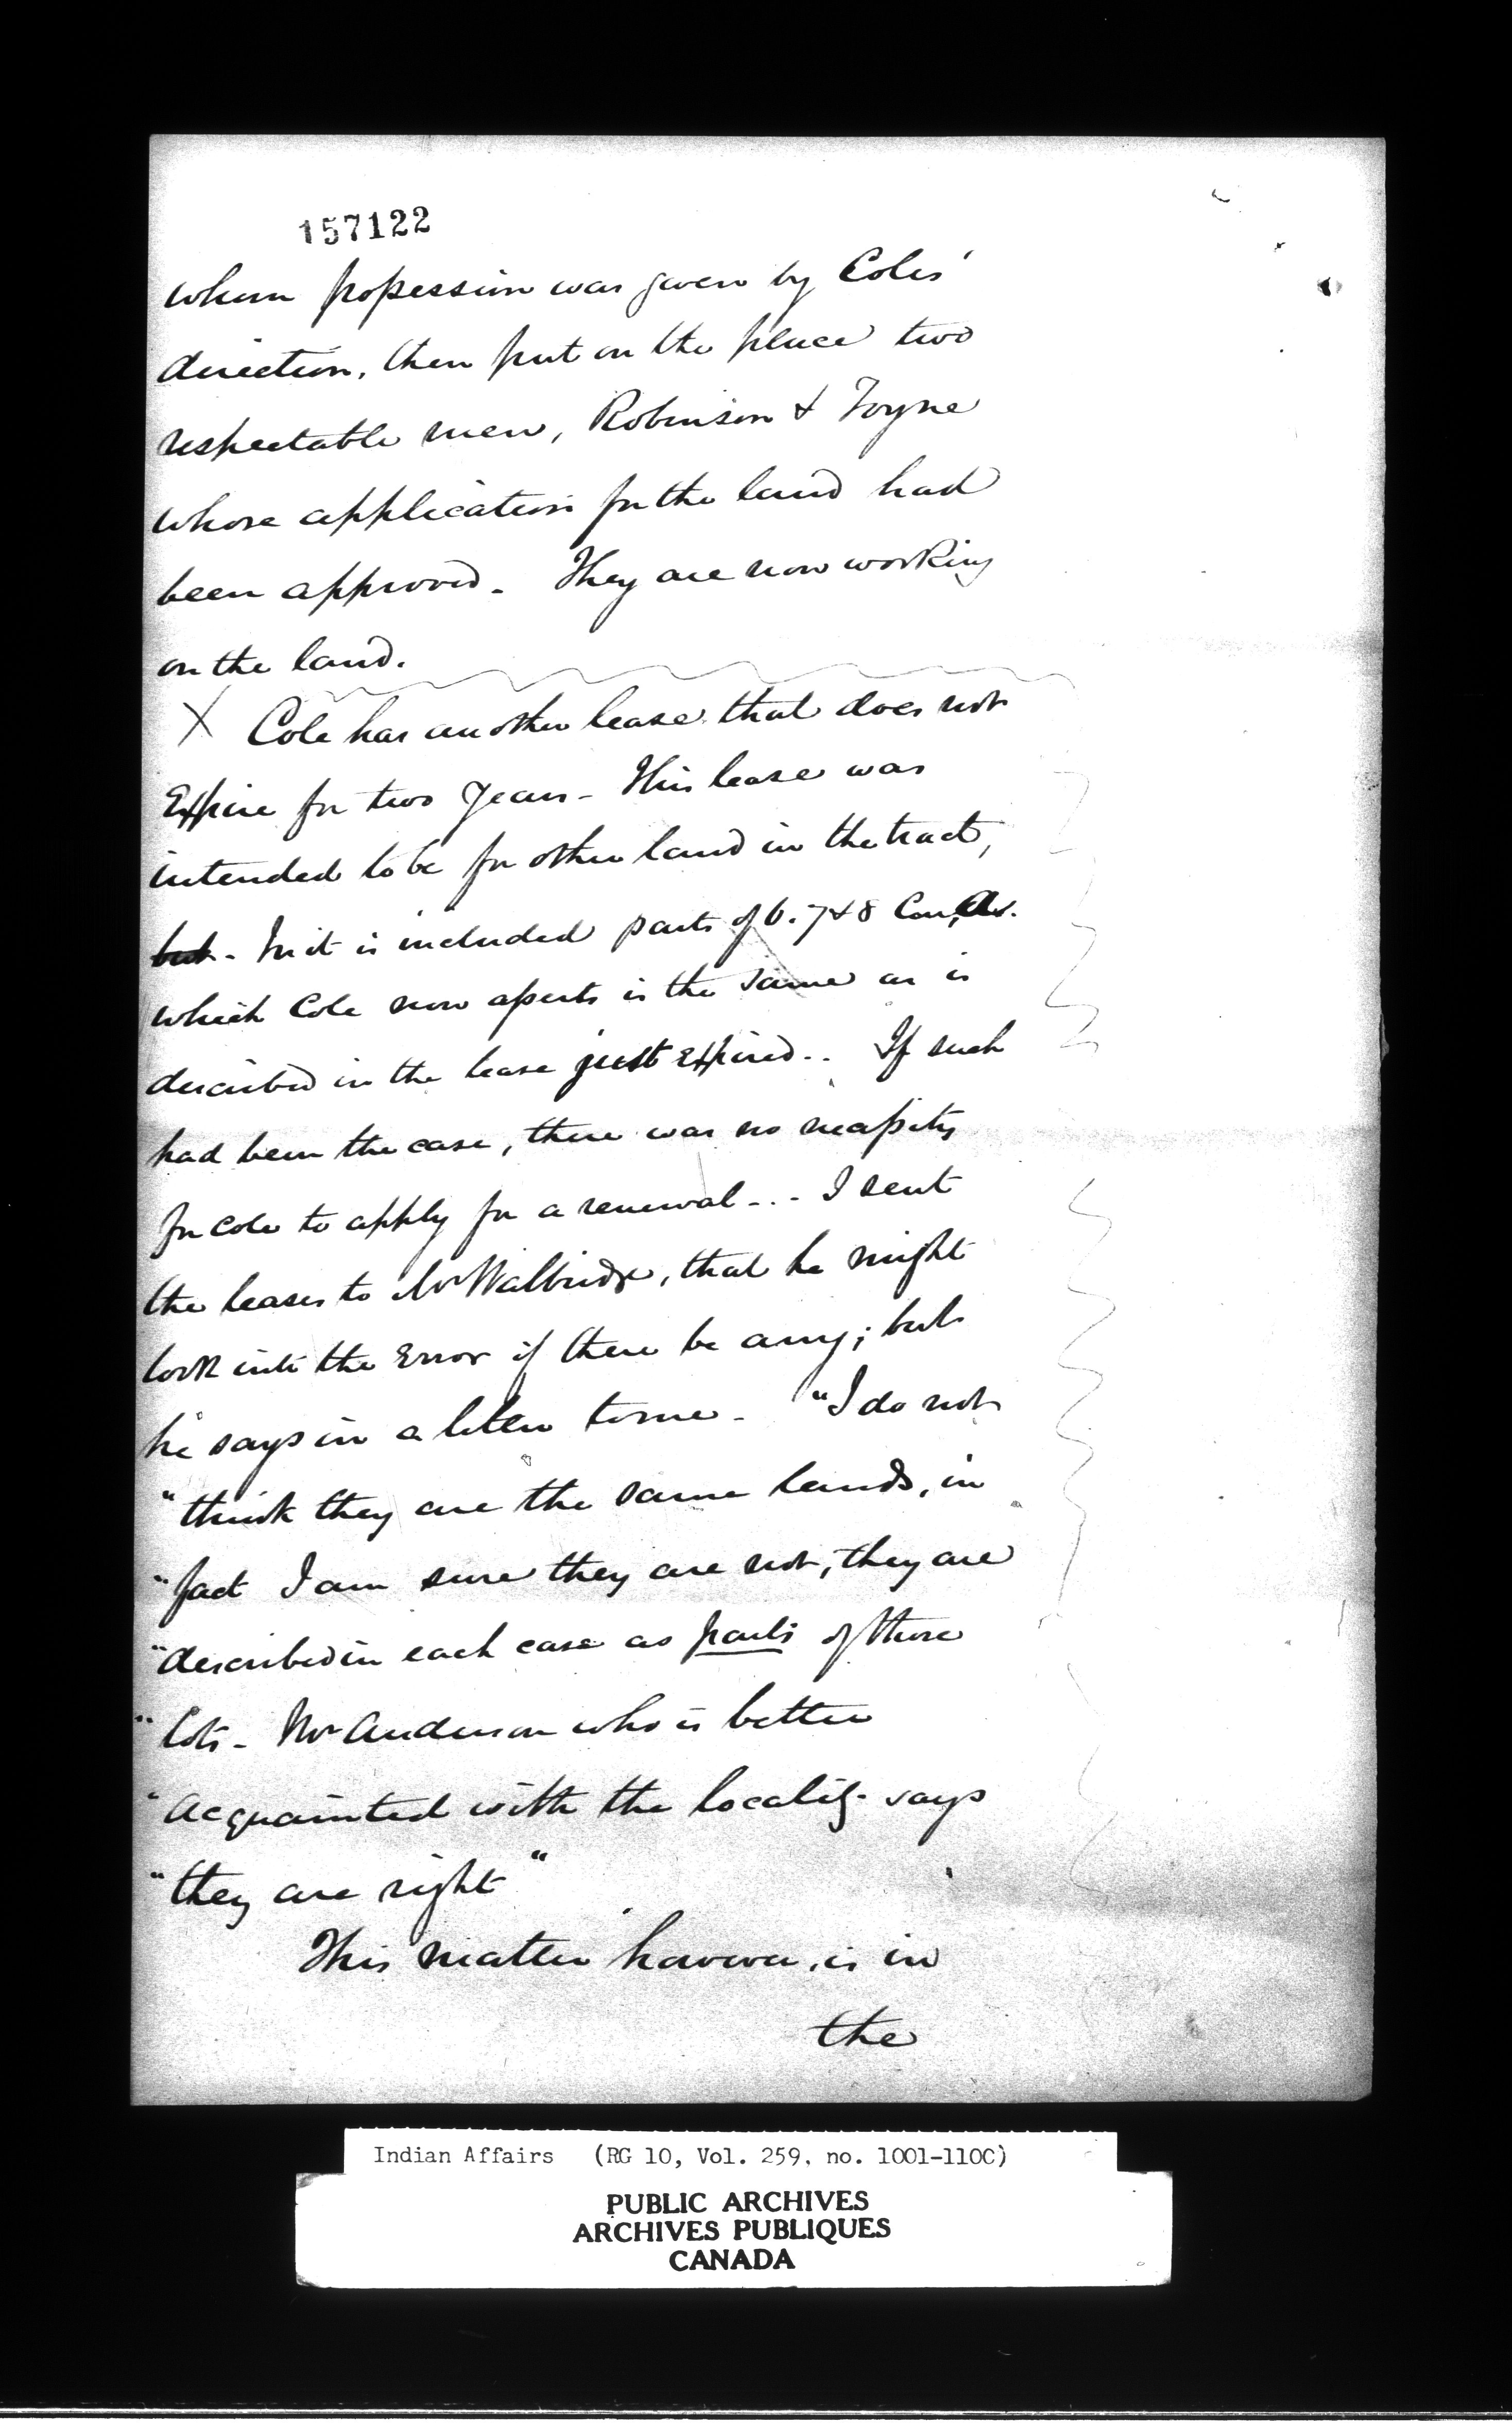 157122
whom possession was given by Coles'
direction, then put on the place two
respectable men, Robinson & Toyne
whose application for the land had
been approved. They are now working
on the land.
X Cole has another lease that does not
Expire for two years - This lease was
intended to be for other land in the tract,
but - In it is included parts of 6. 7 & 8 Con,
which Cole now asserts is the same as is
described in the lease just Expired.. If such
had been the case, there was no necessity
for Cole to apply for a renewal - .. I sent
the leases to Mr Wallbridge, that he might
look into the Error if there be any; but
he says in a letter to me - "I do not
"think they are the same lands, in
"fact I am sure they are not, they are
"described in each case as parts of those
"Lots - Mr Anderson who is better
"Acquainted with the locality says
"they are right"
This matter however, is in
the
Indian Affairs (RG 10, Vol. 259, no. 1001-1100)
PUBLIC ARCHIVES
ARCHIVES PUBLIQUES
CANADA